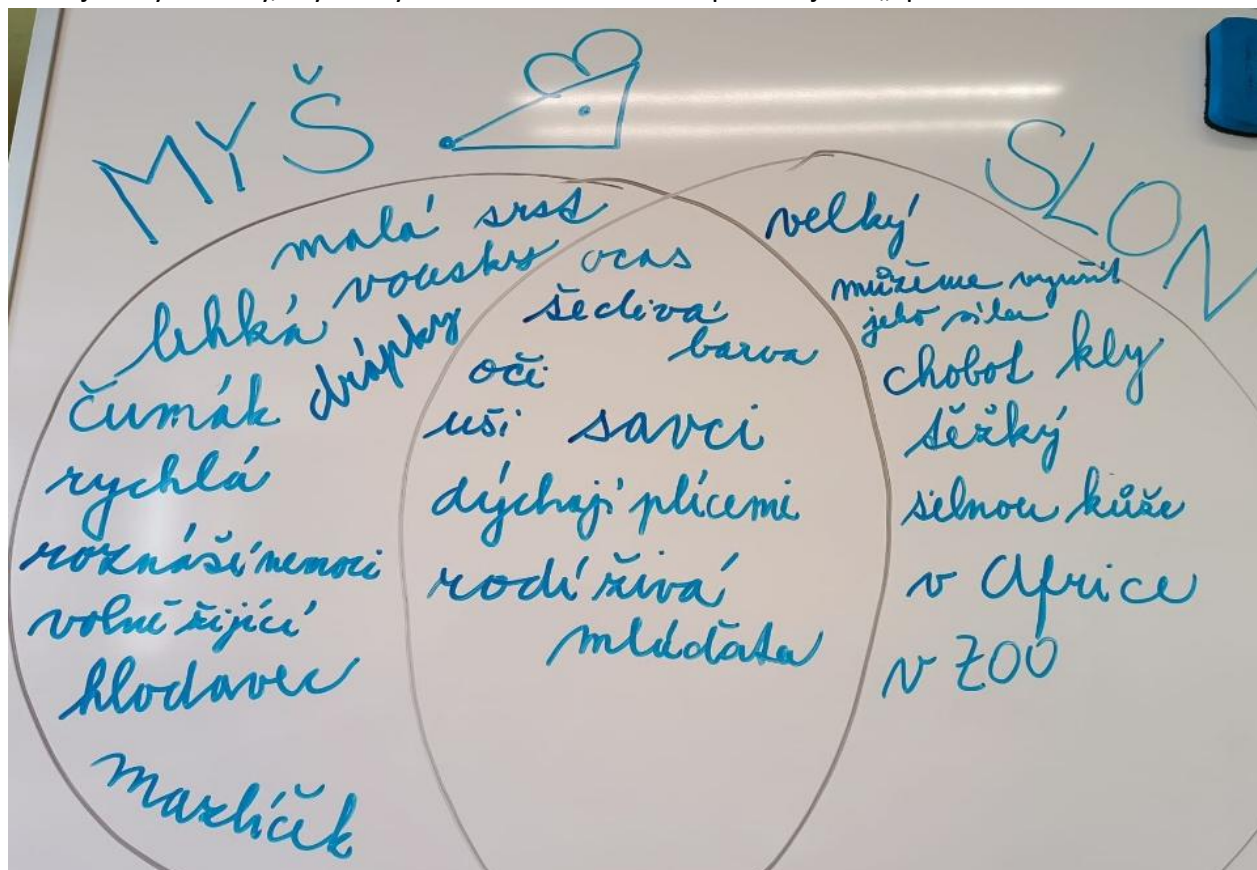 MYŠ
SLON
malá srst
lehká vousky
drápky
čumák
rychlá
roznáší nemoci
volně žijící
hlodavec
mazlíček
ocas
šedivá
barva
oči
uši savci
dýchají plícemi
rodí živá
mláďata
velký
můžeme využít
jeho sílu
chobot kly
těžký
silnou kůže
v Africe
v ZOO